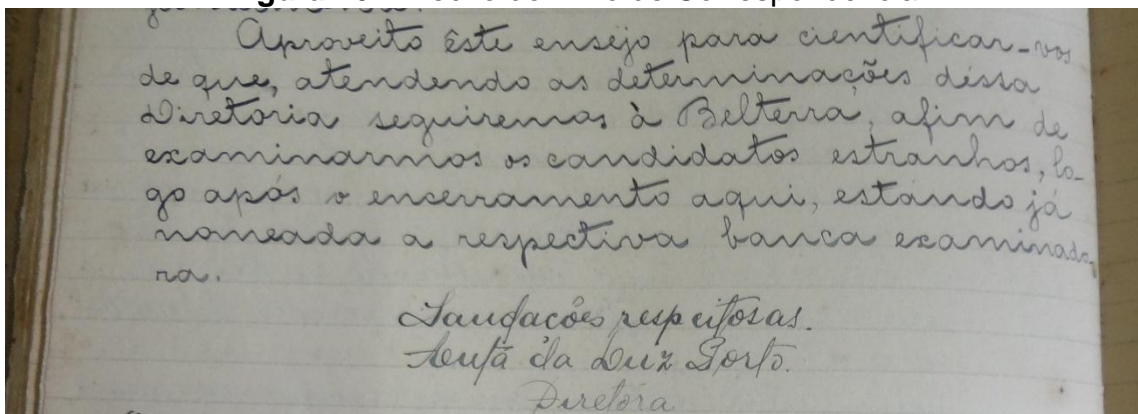 Aproveito êste ensejo para cientificar-vos
de que, atendendo as determinações déssa
Diretoria seguiremos à Belterra, afim de
examinarmos os candidatos estranhos, lo-
go após o encerramento aqui, estando já
nomeada a respectiva banca examinado-
ra.
Saudações respeitosas.
da Luz Porto.
Diretóra